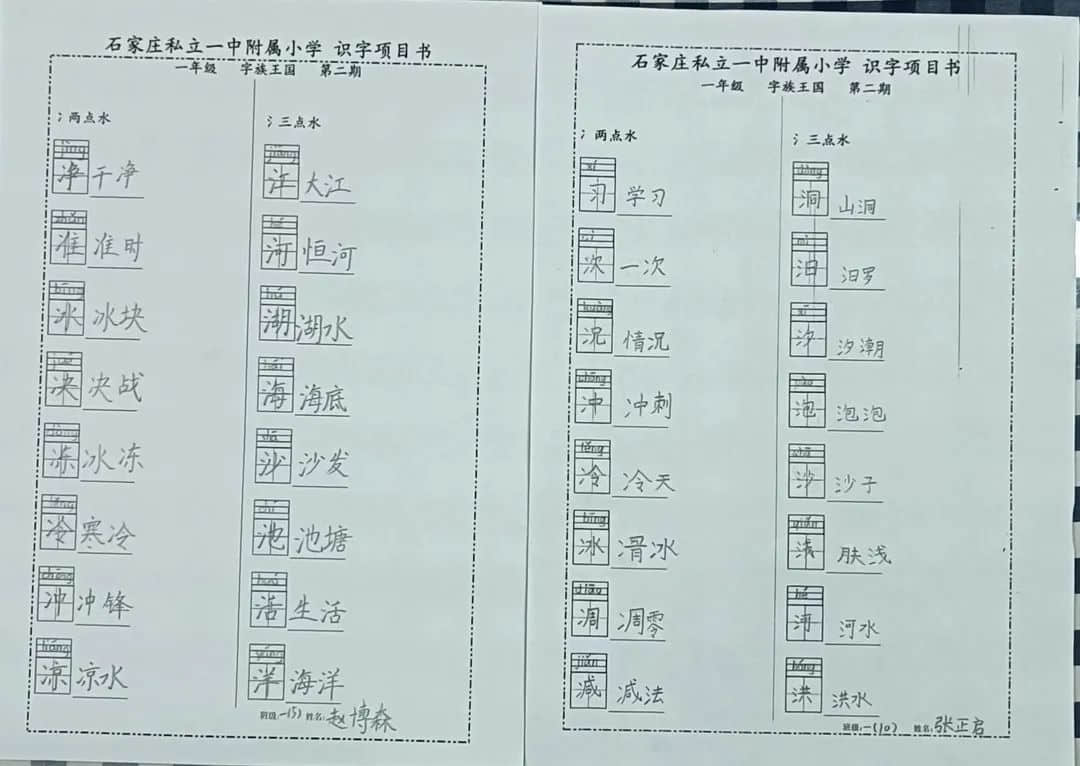 石家庄私立一中附属小学 识字项目书
一年级 字族王国 第二期
冫两点水
jìng
净 干净
zhǔn
准 准时
bīng
冰 冰块
jué
决 决战
dòng
冻 冰冻
lěng
冷 寒冷
chōng
冲 冲锋
liáng
凉 凉水
氵三点水
jiāng
江 大江
hé
河 恒河
hú
湖 湖水
hǎi
海 海底
shā
沙 沙发
chí
池 池塘
huó
活 生活
yáng
洋 海洋
班级:一(5) 姓名:赵博森
石家庄私立一中附属小学 识字项目书
一年级 字族王国 第二期
冫两点水
xí
习 学习
cì
次 一次
kuàng
况 情况
chōng
冲 冲刺
lěng
冷 冷天
bīng
冰 滑冰
diāo
凋 凋零
jiǎn
减 减法
氵三点水
dòng
洞 山洞
mì
汨 汨罗
xī
汐 汐潮
pào
泡 泡泡
shā
沙 沙子
qiǎn
浅 肤浅
hé
河 河水
hóng
洪 洪水
班级:一(10) 姓名:张正启